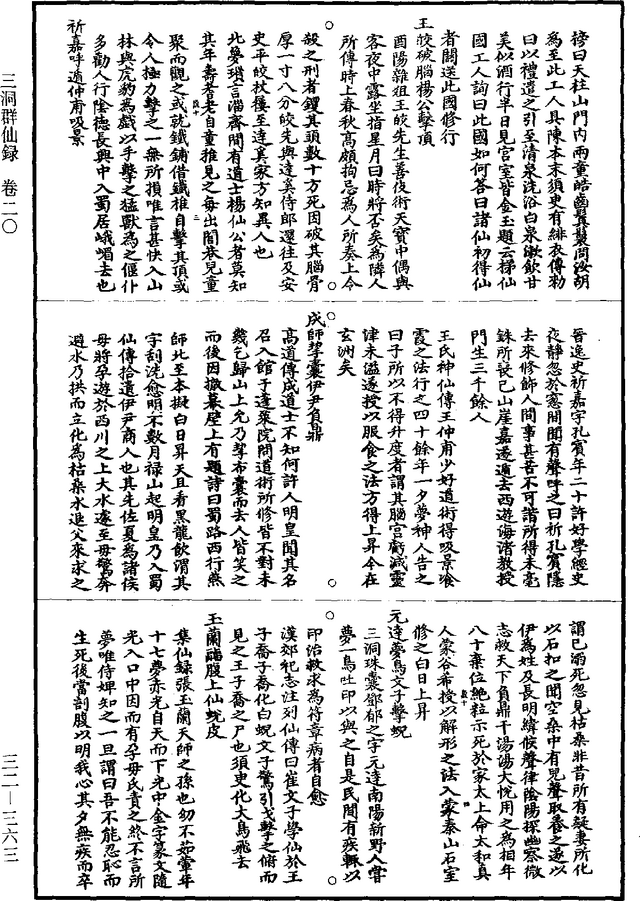 三洞群仙録 卷二〇
三二—三六三
榜曰天柱山門内兩童皓齒鬒鬢問汝胡
為至此工人具陳本末須臾有緋衣傳勑
曰以禮遣之引至清泉洗浴白泉漱飲甘
美似酒行半日見宮室皆金玉題云梯仙
國工人詢曰此國如何答曰諸仙初得仙
者關送此國修行
王皎破腦楊公擊頂
酉陽雜俎王皎先生善佞術天寶中偶與
客夜中露坐指星月曰時將否矣為隣人
所傳時上春秋高頗拘忌為人所奏上令
殺之刑者钁其頭數十方死因破其腦骨
厚一寸八分皎先與達奚侍郎還往及安
史平皎杖屨至達奚家方知異人也
北夢瑣言淄齊間有道士楊仙公者莫知
其年壽耆老自童稚見之每出閭巷兒童
聚而觀之或就鐵鋪借鐵椎自擊其頂或
令人極力擊之一無所損唯言甚快入山
林與虎豹為戲以手擊之猛獸為之偃仆
多勸人行陰德長興中入蜀居峨嵋去也
祈嘉呼遁仲甫吸景
晉逸史祈嘉字孔賓年二十許好學經史
夜靜忽於窻間聞有聲呼之曰祈孔賓隱
去來修飾人間事甚苦不可諧所得未毫
銖所喪已山崖嘉遂遁去西遊海渚教授
門生三千餘人
王氏神仙傳王仲甫少好道術得吸景飡
霞之法行之四十餘年一夕夢神人告之
曰子所以不得升度者謂其腦宮虧減靈
津未溢遂授以服食之法方得上昇今在
玄洲矣
成師挈囊伊尹負鼎
高道傳成道士不知何許人明皇聞其名
召入館于蓬萊院問道術所修皆不對未
幾乞歸山上允乃挈布囊而去人皆笑之
而後因撤幕壁上有題詩曰蜀路西行燕
師北至本擬白日昇天且看黑龍飲渭其
字刮洗愈明不數月禄山起明皇乃入蜀
仙傳拾遺伊尹商人也其先佐夏為諸侯
母將孕遊於西川之上大水遽至母驚奔
避水乃拱而立化為枯桑水退父來求之
謂已溺死忽見枯桑非昔所有疑妻所化
以石扣之聞空桑中有兒聲取養之遂以
伊為姓及長明緯候聲律陰陽探幽察微
志救天下負鼎干湯湯大悦用之為相年
八十棄位絶粒示死於家太上命太和真
人蒙谷希授以解形之法入蒙泰山石室
修之白日上昇
元達夢鳥文子擊蜺
三洞珠囊鄧郁之字元達南陽新野人嘗
夢一鳥吐印以與之自是民間有疾輒以
印治救求為符章病者自愈
漢郊祀志注列仙傳曰崔文子學仙於王
子喬子喬化白蜺文子驚引戈擊之俯而
見之王子喬之尸也須臾化大鳥飛去
玉蘭誧腹上仙蛻皮
集仙録張玉蘭天師之孫也幼不茹葷年
十七夢赤光自天而下光中金字篆文隨
光入口中因而有孕母氏責之終不言所
夢唯侍婢知之一旦謂曰吾不能忍恥而
生死後當剖腹以明我心其夕無疾而卒